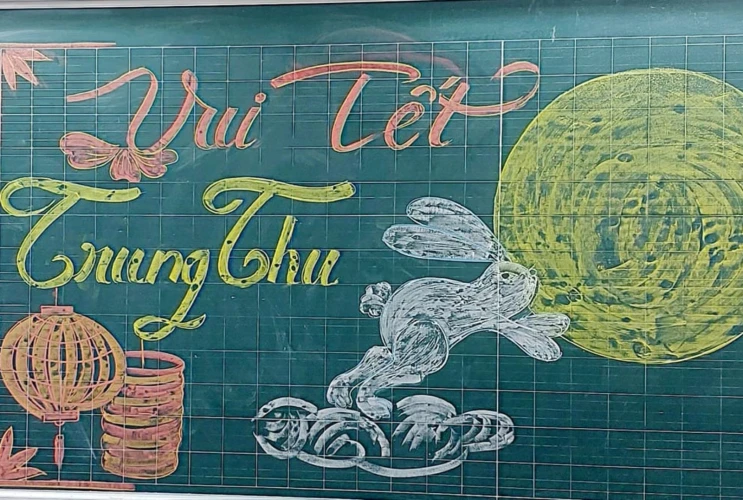 Vui Tết
Trung Thu